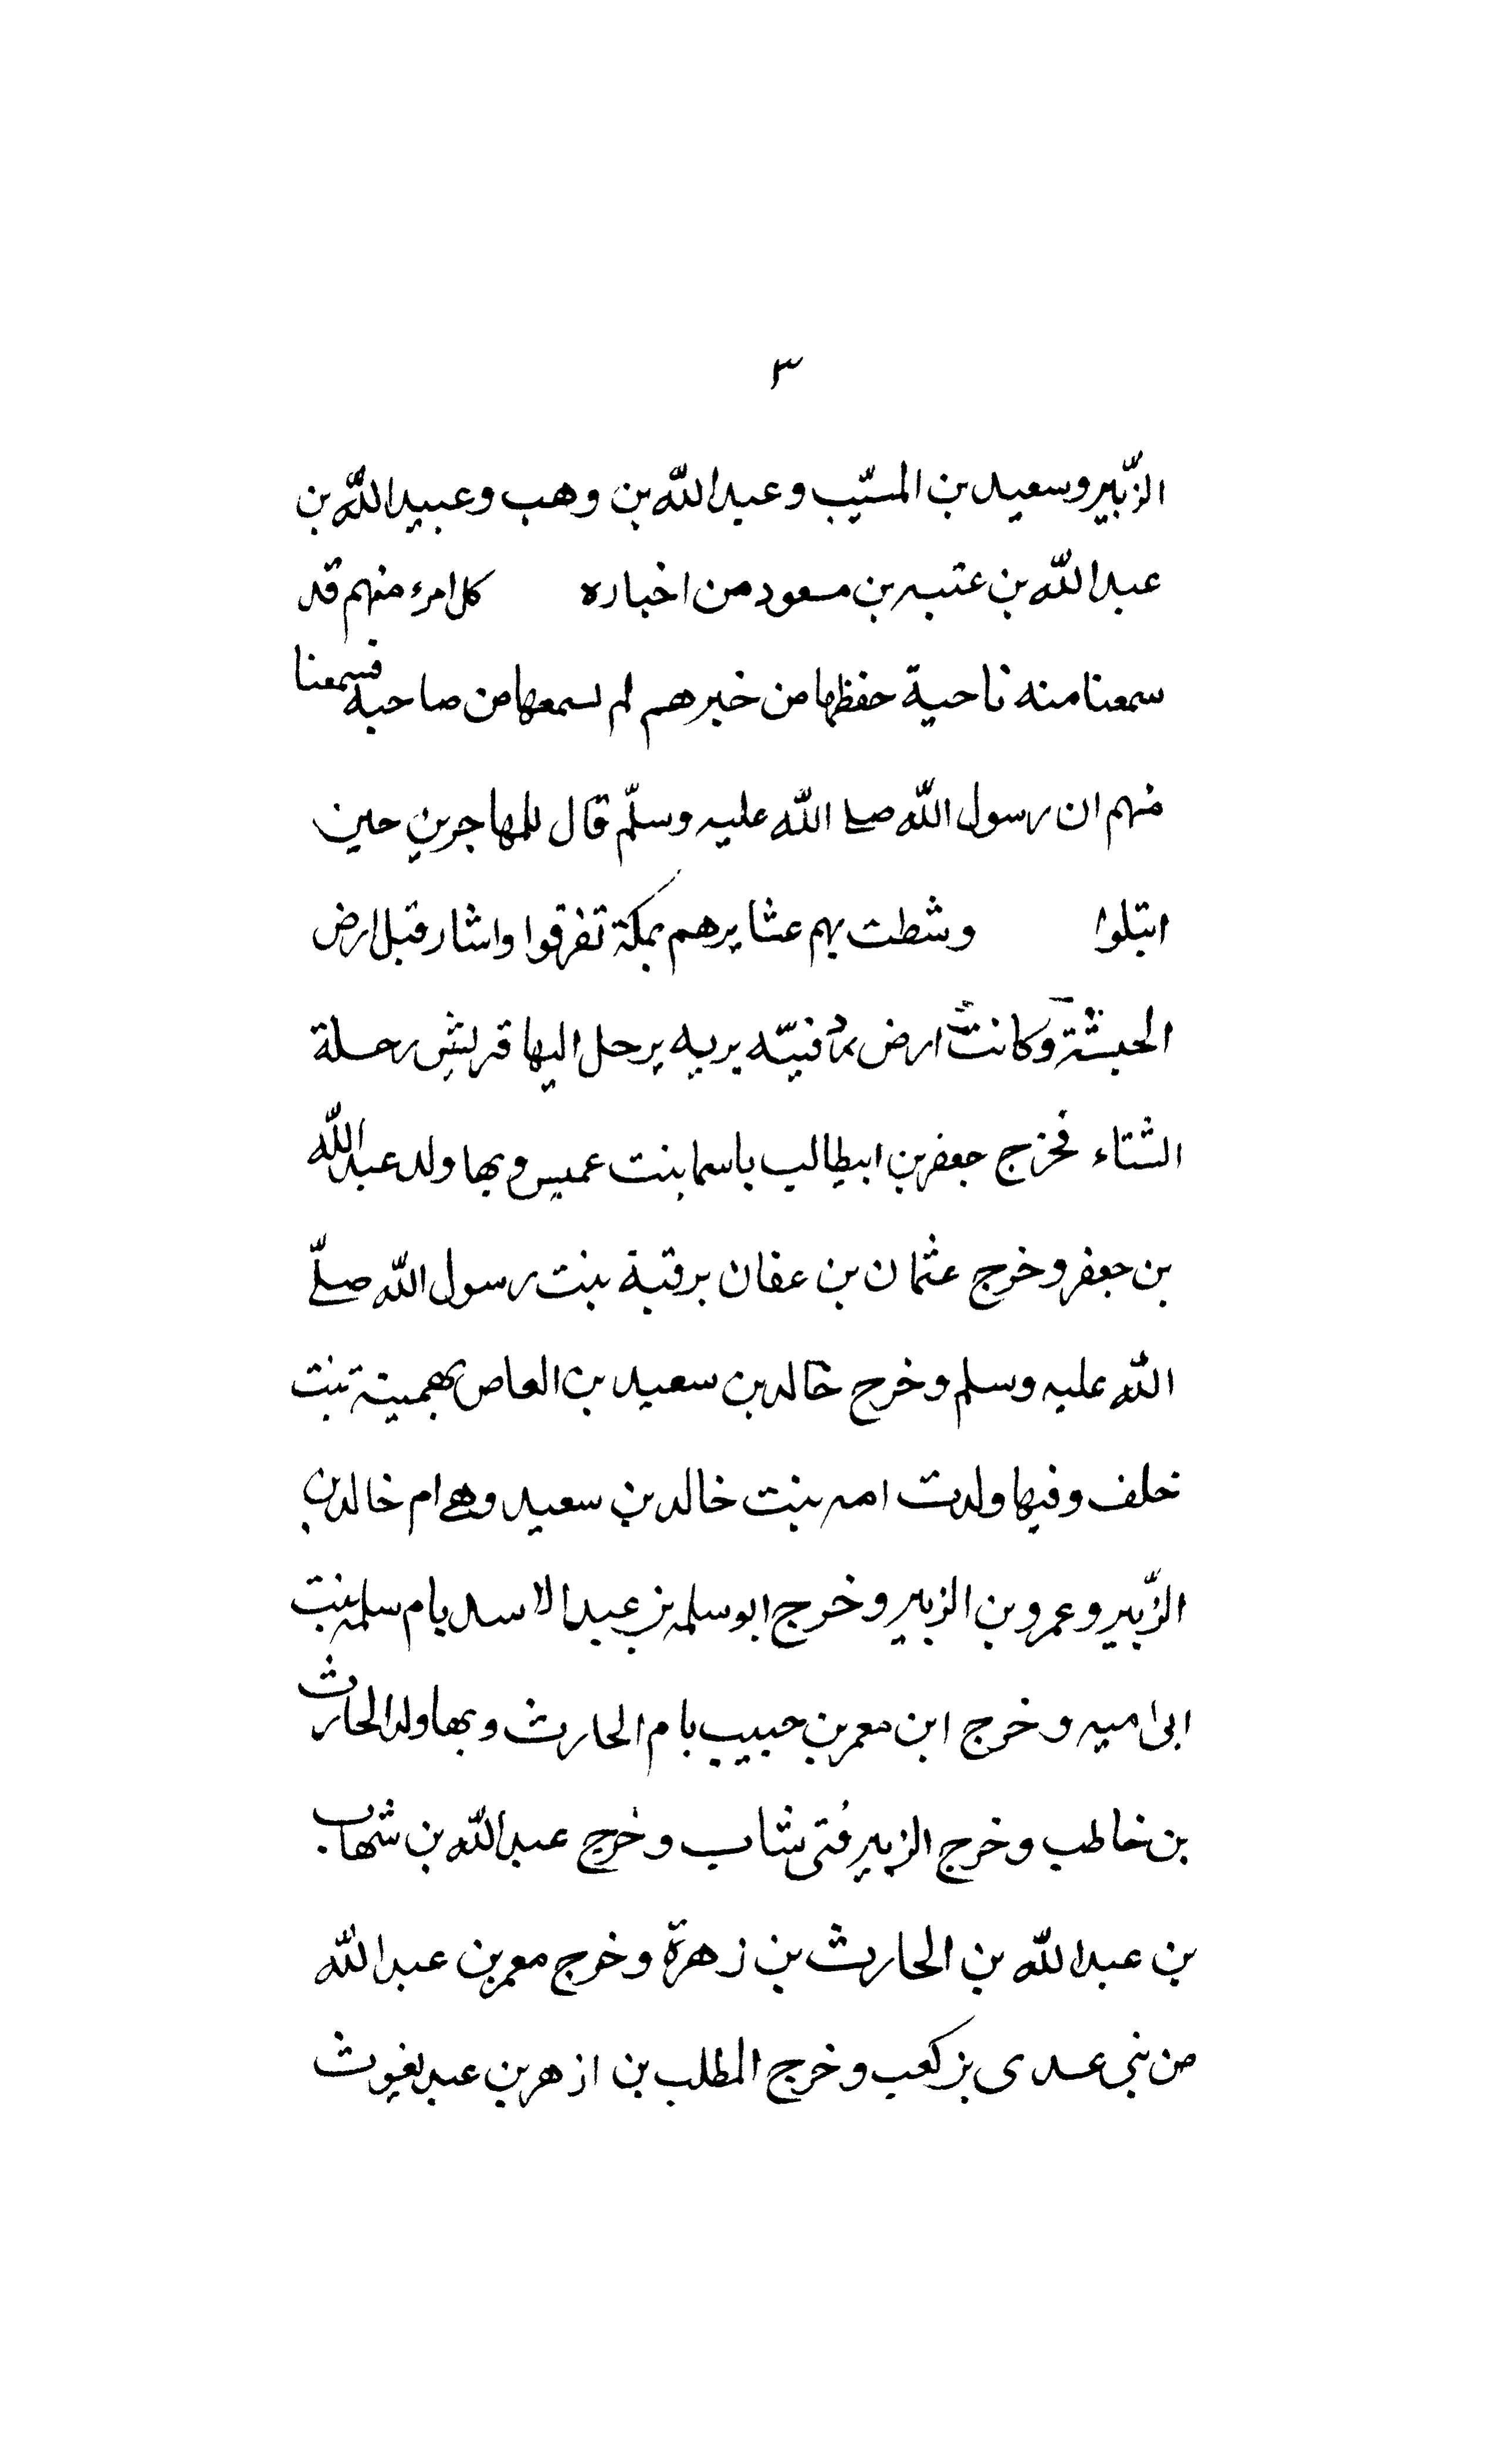 ٣
الزّبير وسعيد بن المسيّب وعبد الله بن وهب وعبيد الله بن
عبد الله بن عتبه بن مسعود من اخباره كل امرء منهم قد
سمعنا منه ناحية حفظها من خبرهم لم نسمعها من صاحبه فسمعنا
منهم ان رسول الله صلے الله عليه وسلّم قال للمهاجرين حين
ابتلوا وشطت بهم عشايرهم بمكة تفرقوا واشار قبل ارض
الحبشة وكانت ارض يريه يرحل اليها قريش رحلة
الشتاء فخرج جعفر بن ابيطالب باسما بنت عميس وبها ولد عبد الله
بن جعفر وخرج عثمان بن عفان برقية بنت رسول الله صلّے
الله عليه وسلم وخرج خالد بن سعيد بن العاص بهمينة بنت
خلف وفيها ولدت امه بنت خالد بن سعيد وهے ام خالد بن
الزّبير وعمرو بن الزبير وخرج ابو سلمه بن عبد الاسد بام سلمه بنت
ابى اميه وخرج ابن معمر بن حبيب بام الحارث وبها ولد الحارث
بن خاطب وخرج الزبير فتى شاب وخرج عبد الله بن شهاب
بن عبد الله بن الحارث بن زهرة وخرج معمر بن عبد الله
من بنى عدى بن كعب وخرج المطلب بن ازهر بن عبد يغوث